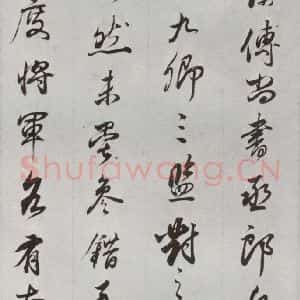 傅尚書丞郎
九卿三監對之
然未嘗參錯
度將軍各有
Shufawang.CN